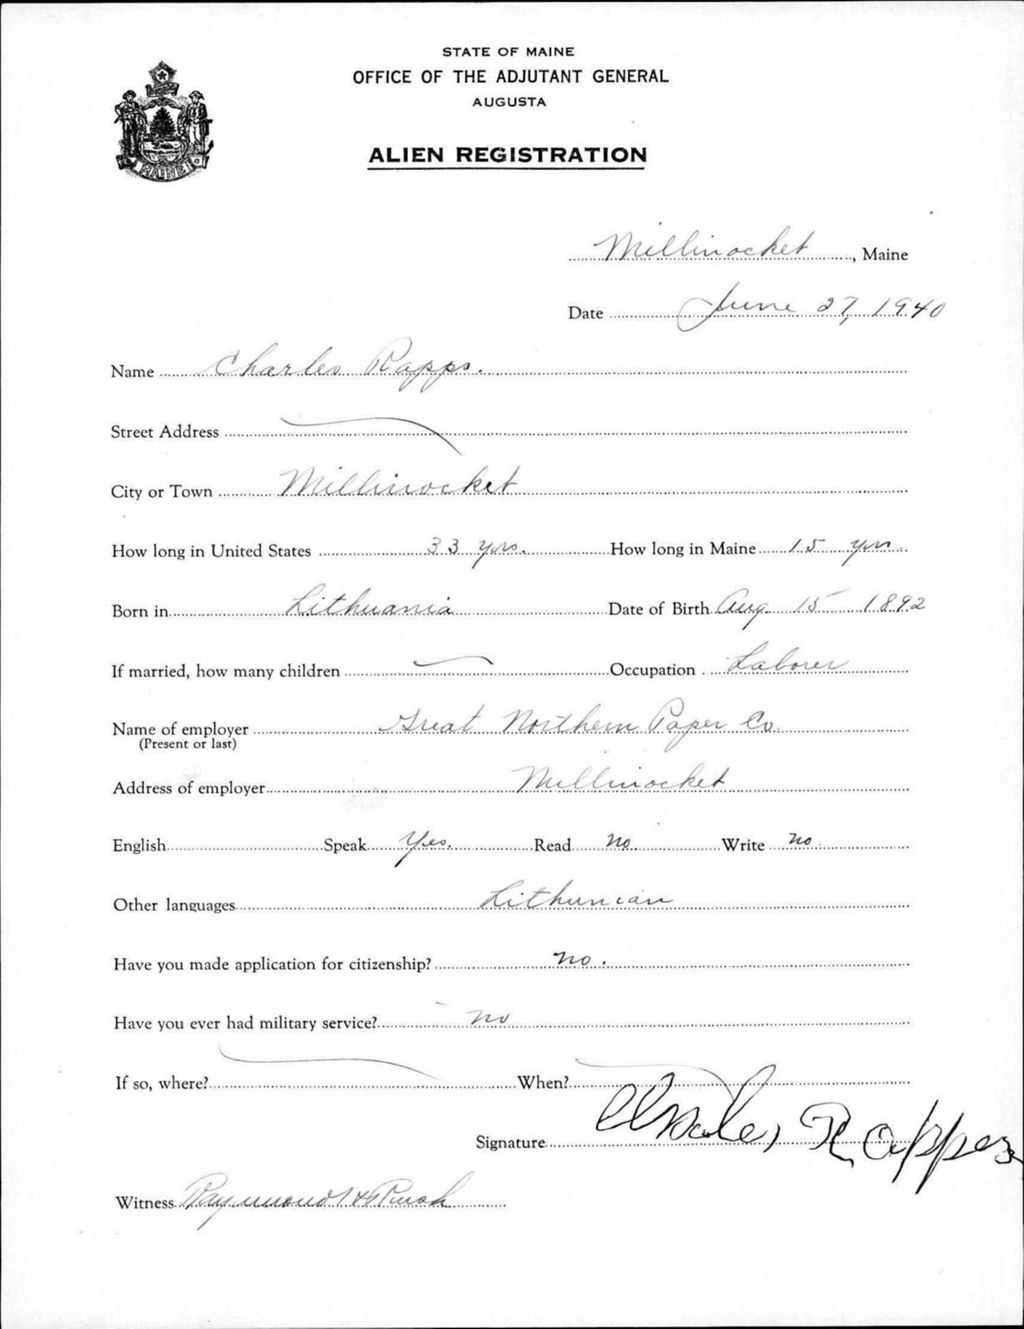 STATE OF MAINE
OFFICE OF THE ADJUTANT GENERAL
AUGUSTA
ALIEN REGISTRATION
MAINE
Millinocket, Maine
Date June 27, 1940
Name Charles Rapps.
Street Address
City or Town Millinocket
How long in United States 33 yrs. How long in Maine 15 yrs
Born in Lithuania Date of Birth Aug 15 1892
If married, how many children Occupation Laborer
Name of employer Great Northern Paper Co.
(Present or last)
Address of employer Millinocket
English Speak Yes. Read No. Write No.
Other languages Lithunian
Have you made application for citizenship? No.
Have you ever had military service? No
If so, where? When?
Signature Rappes
Witness Raymond H